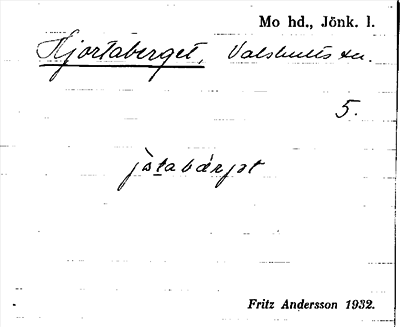 Mo hd., Jönk. l.
Hjortaberget, Valshults sn.
5.
jo̊tabærjət
Fritz Andersson 1932.